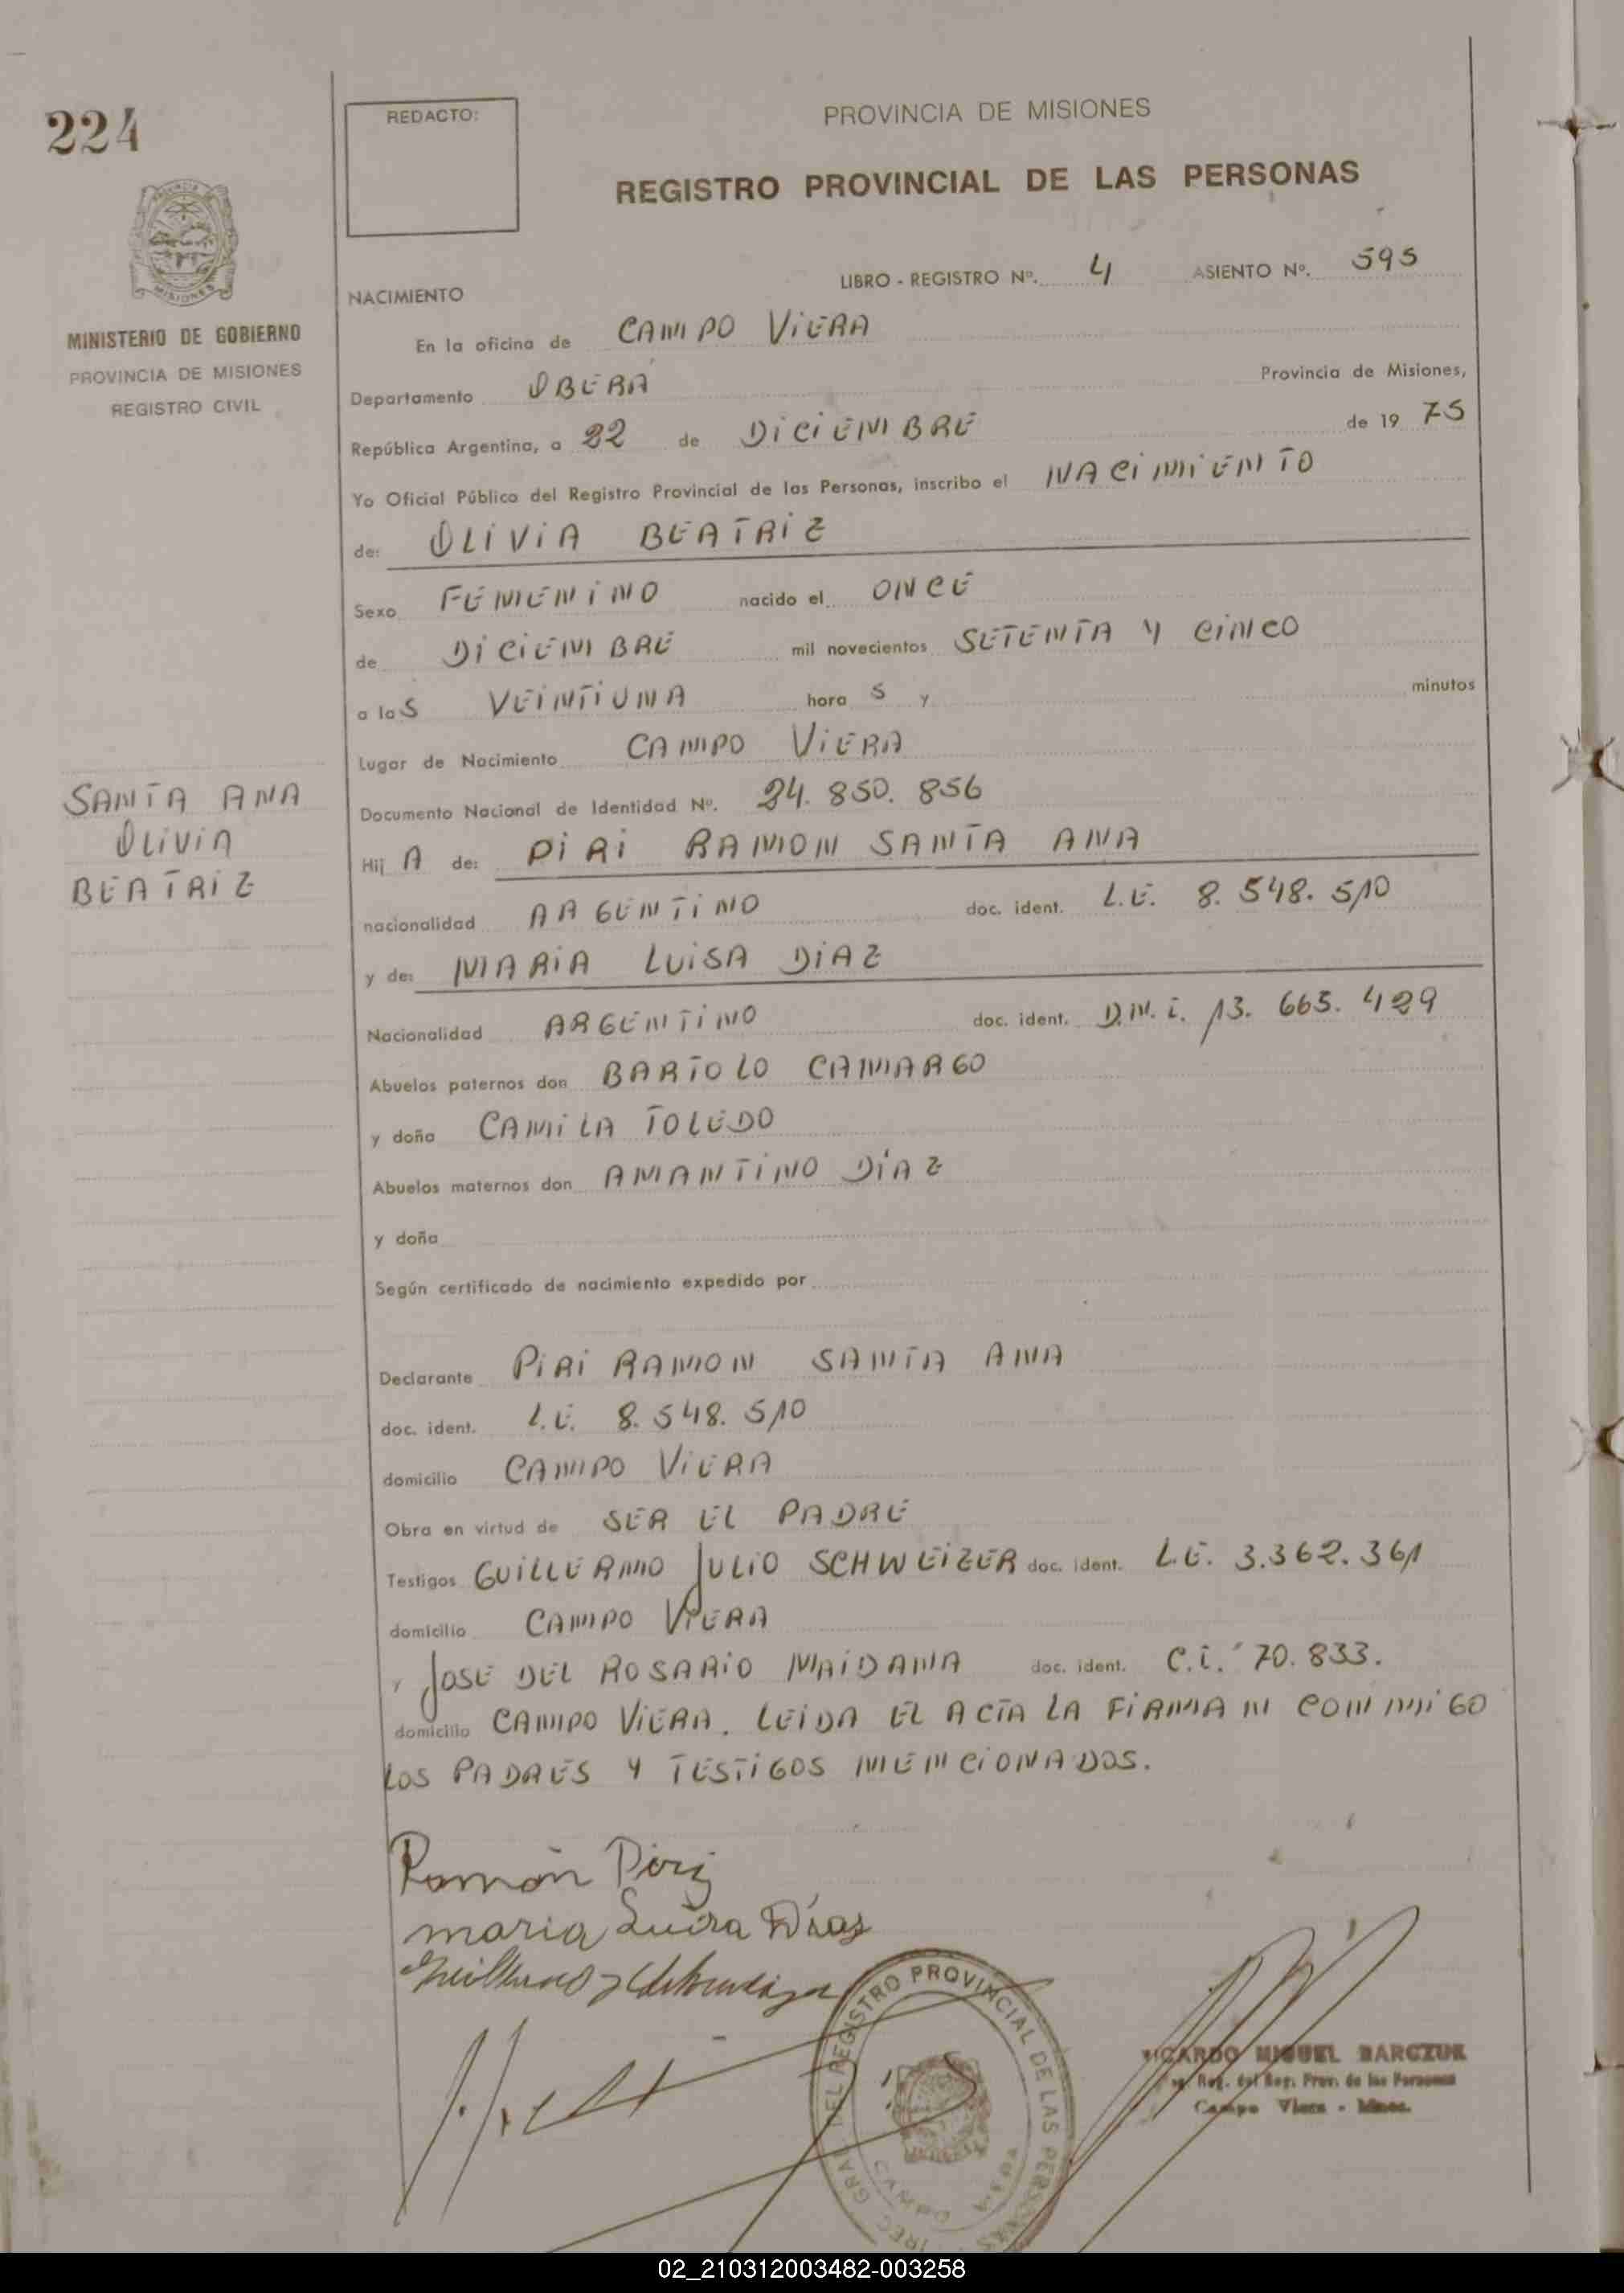 224
MISIONES
MINISTERIO DE GOBIERNO
PROVINCIA DE MISIONES
REGISTRO CIVIL
SANTA ANA
OLIVIA
BEATRIZ
REDACTO:
PROVINCIA DE MISIONES
REGISTRO PROVINCIAL DE LAS PERSONAS
LIBRO - REGISTRO Nº. 4 ASIENTO Nº. 595
NACIMIENTO
En la oficina de CAMPO VIERA
Departamento OBERÁ Provincia de Misiones,
República Argentina, a 22 de DICIEMBRE de 19 75
Yo Oficial Público del Registro Provincial de las Personas, inscribo el NACIMIENTO
de: OLIVIA BEATRIZ
Sexo FEMENINO nacido el ONCE
de DICIEMBRE mil novecientos SETENTA Y CINCO
a laS VEINTIUNA hora S y minutos
Lugar de Nacimiento CAMPO VIERA
Documento Nacional de Identidad Nº. 24.850.856
Hij A de: PIRI RAMON SANTA ANA
nacionalidad ARGENTINO doc. ident. L.E. 8.548.510
y de: MARIA LUISA DIAZ
Nacionalidad ARGENTINO doc. ident. D.N.I. 13.665.429
Abuelos paternos don BARTOLO CAMARGO
y doña CAMILA TOLEDO
Abuelos maternos don AMANTINO DÍAZ
y doña
Según certificado de nacimiento expedido por
Declarante PIRI RAMON SANTA ANA
doc. ident. L.E. 8.548.510
domicilio CAMPO VIERA
Obra en virtud de SER EL PADRE
Testigos GUILLERMO JULIO SCHWEIZER doc. ident. L.E. 3.362.361
domicilio CAMPO VIERA
y JOSE DEL ROSARIO MAIDANA doc. ident. C.I. 70.833.
domicilio CAMPO VIERA. LEIDA EL ACTA LA FIRMAN CONMIGO
LOS PADRES Y TESTIGOS MENCIONADOS.
Ramón Piri
maria Luisa Días
DEL REGISTRO PROVINCIAL DE LAS PERSONAS
CAMPO VIERA
RICARDO MIGUEL BARCZUK
Reg. del Reg. Prov. de las Personas
Campo Viera - Mnes.
02_210312003482-003258